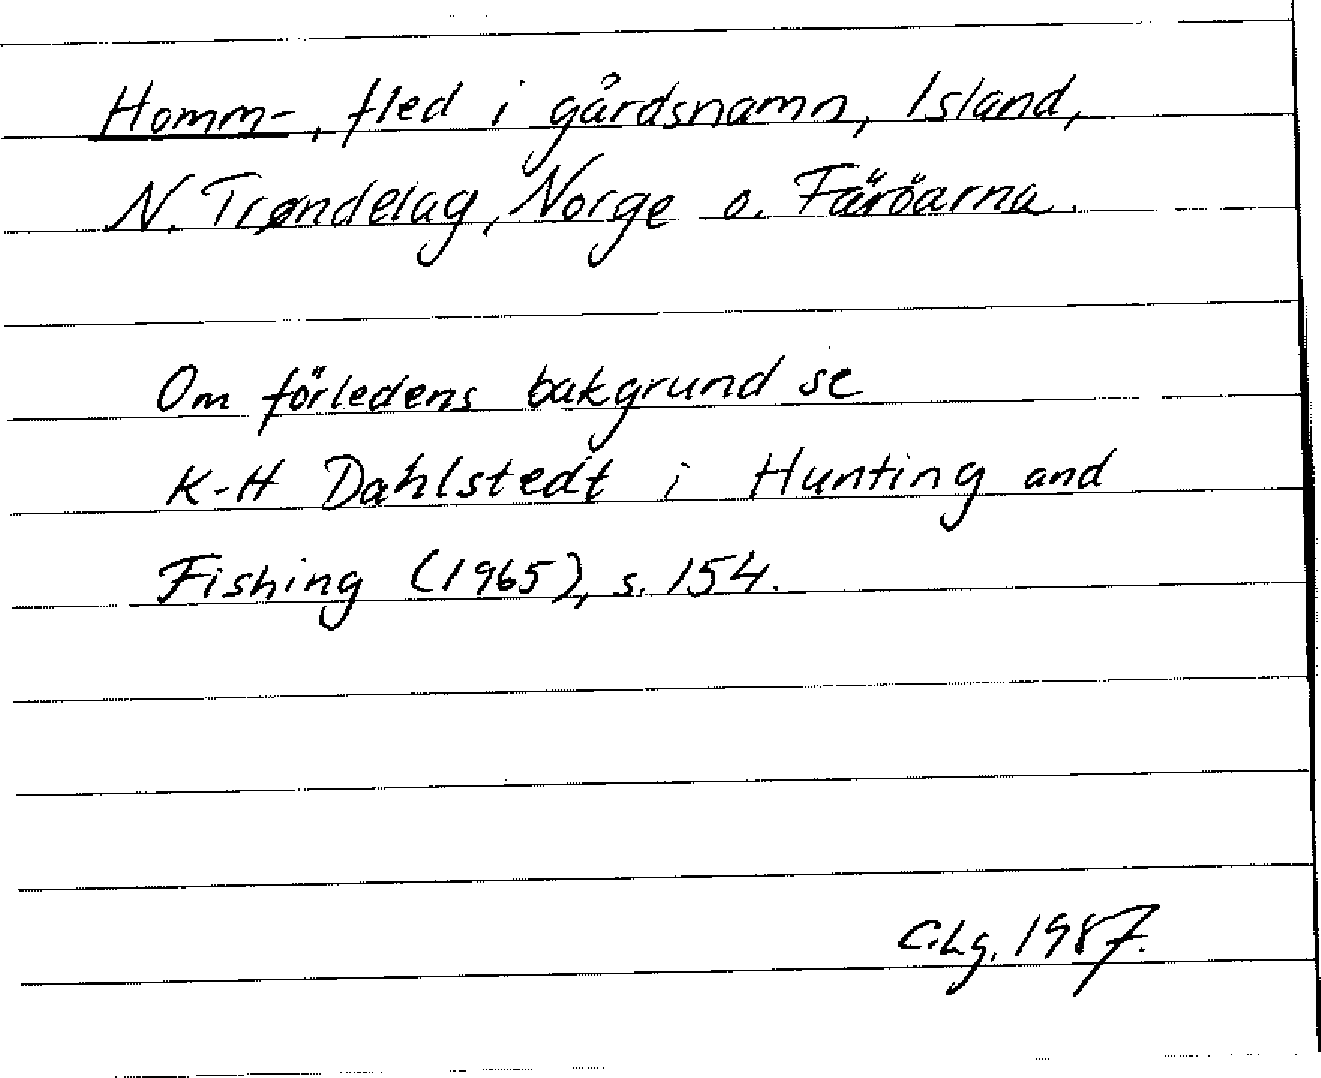 Homm-, fled i gårdsnamn, Island,
N. Trøndelag, Norge o. Färöarna.
Om förledens bakgrund se
K-H Dahlstedt i Hunting and
Fishing (1965), s. 154.
C.Lg. 1987.